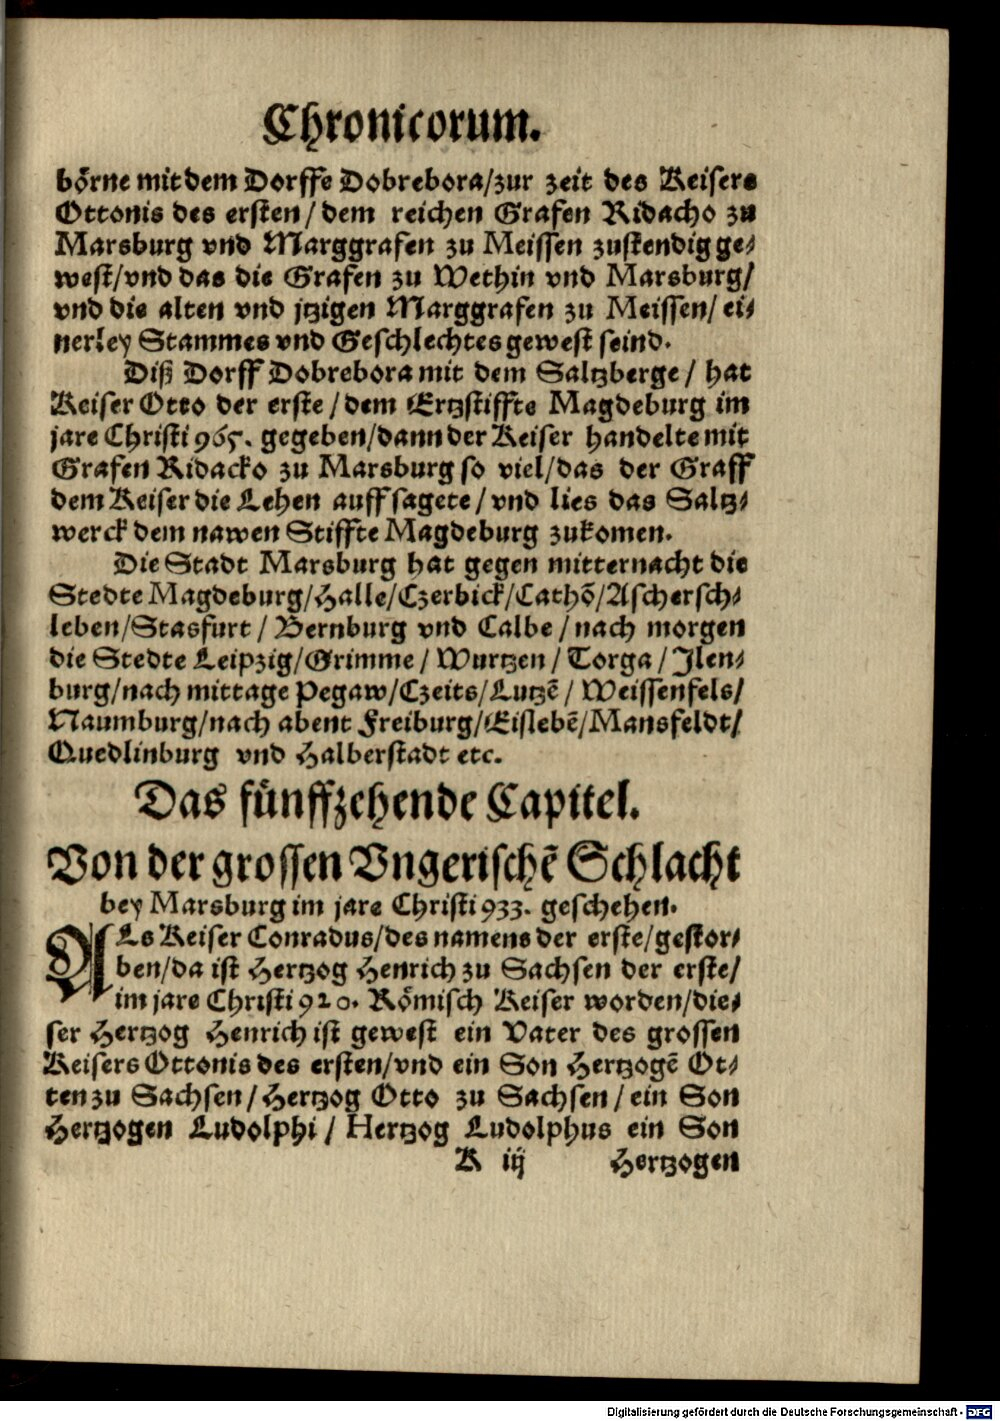 Chronicorum.
börne mit dem Dorffe Dobrebora/zur zeit des Keisers
Ottonis des ersten/dem reichen Grafen Ridacho zu
Marsburg vnd Marggrafen zu Meissen zustendig ge-
west/vnd das die Grafen zu Wethin vnd Marsburg/
vnd die alten vnd jtzigen Marggrafen zu Meissen/ei-
nerley Stammes vnd Geschlechtes gewest seind.
Diß Dorff Dobrebora mit dem Saltzberge/hat
Keiser Otto der erste/dem Ertzstiffte Magdeburg im
jare Christi 965. gegeben/dann der Keiser handelte mit
Grafen Ridacko zu Marsburg so viel/das der Graff
dem Keiser die Lehen auffsagete/vnd lies das Saltz-
werck dem nawen Stiffte Magdeburg zukomen.
Die Stadt Marsburg hat gegen mitternacht die
Stedte Magdeburg/Halle/Czerbick/Cathō/Aschersch-
leben/Stasfurt/Bernburg vnd Calbe/nach morgen
die Stedte Leipzig/Grimme/Wurtzen/Torga/Jlen-
burg/nach mittage Pegaw/Czeits/Lutzē/Weissenfels/
Naumburg/nach abent Freiburg/Eislebē/Mansfeldt/
Quedlinburg vnd Halberstadt etc.
Das fünffzehende Capitel.
Von der grossen Vngerischē Schlacht
bey Marsburg im jare Christi 933. geschehen.
ALs Keiser Conradus/des namens der erste/gestor-
ben/da ist Hertzog Henrich zu Sachsen der erste/
im jare Christi 920. Römisch Keiser worden/die-
ser Hertzog Henrich ist gewest ein Vater des grossen
Keisers Ottonis des ersten/vnd ein Son Hertzogē Ot-
ten zu Sachsen/Hertzog Otto zu Sachsen/ein Son
Hertzogen Ludolphi/Hertzog Ludolphus ein Son
K iij Hertzogen
Digitalisierung gefördert durch die Deutsche Forschungsgemeinschaft - DFG